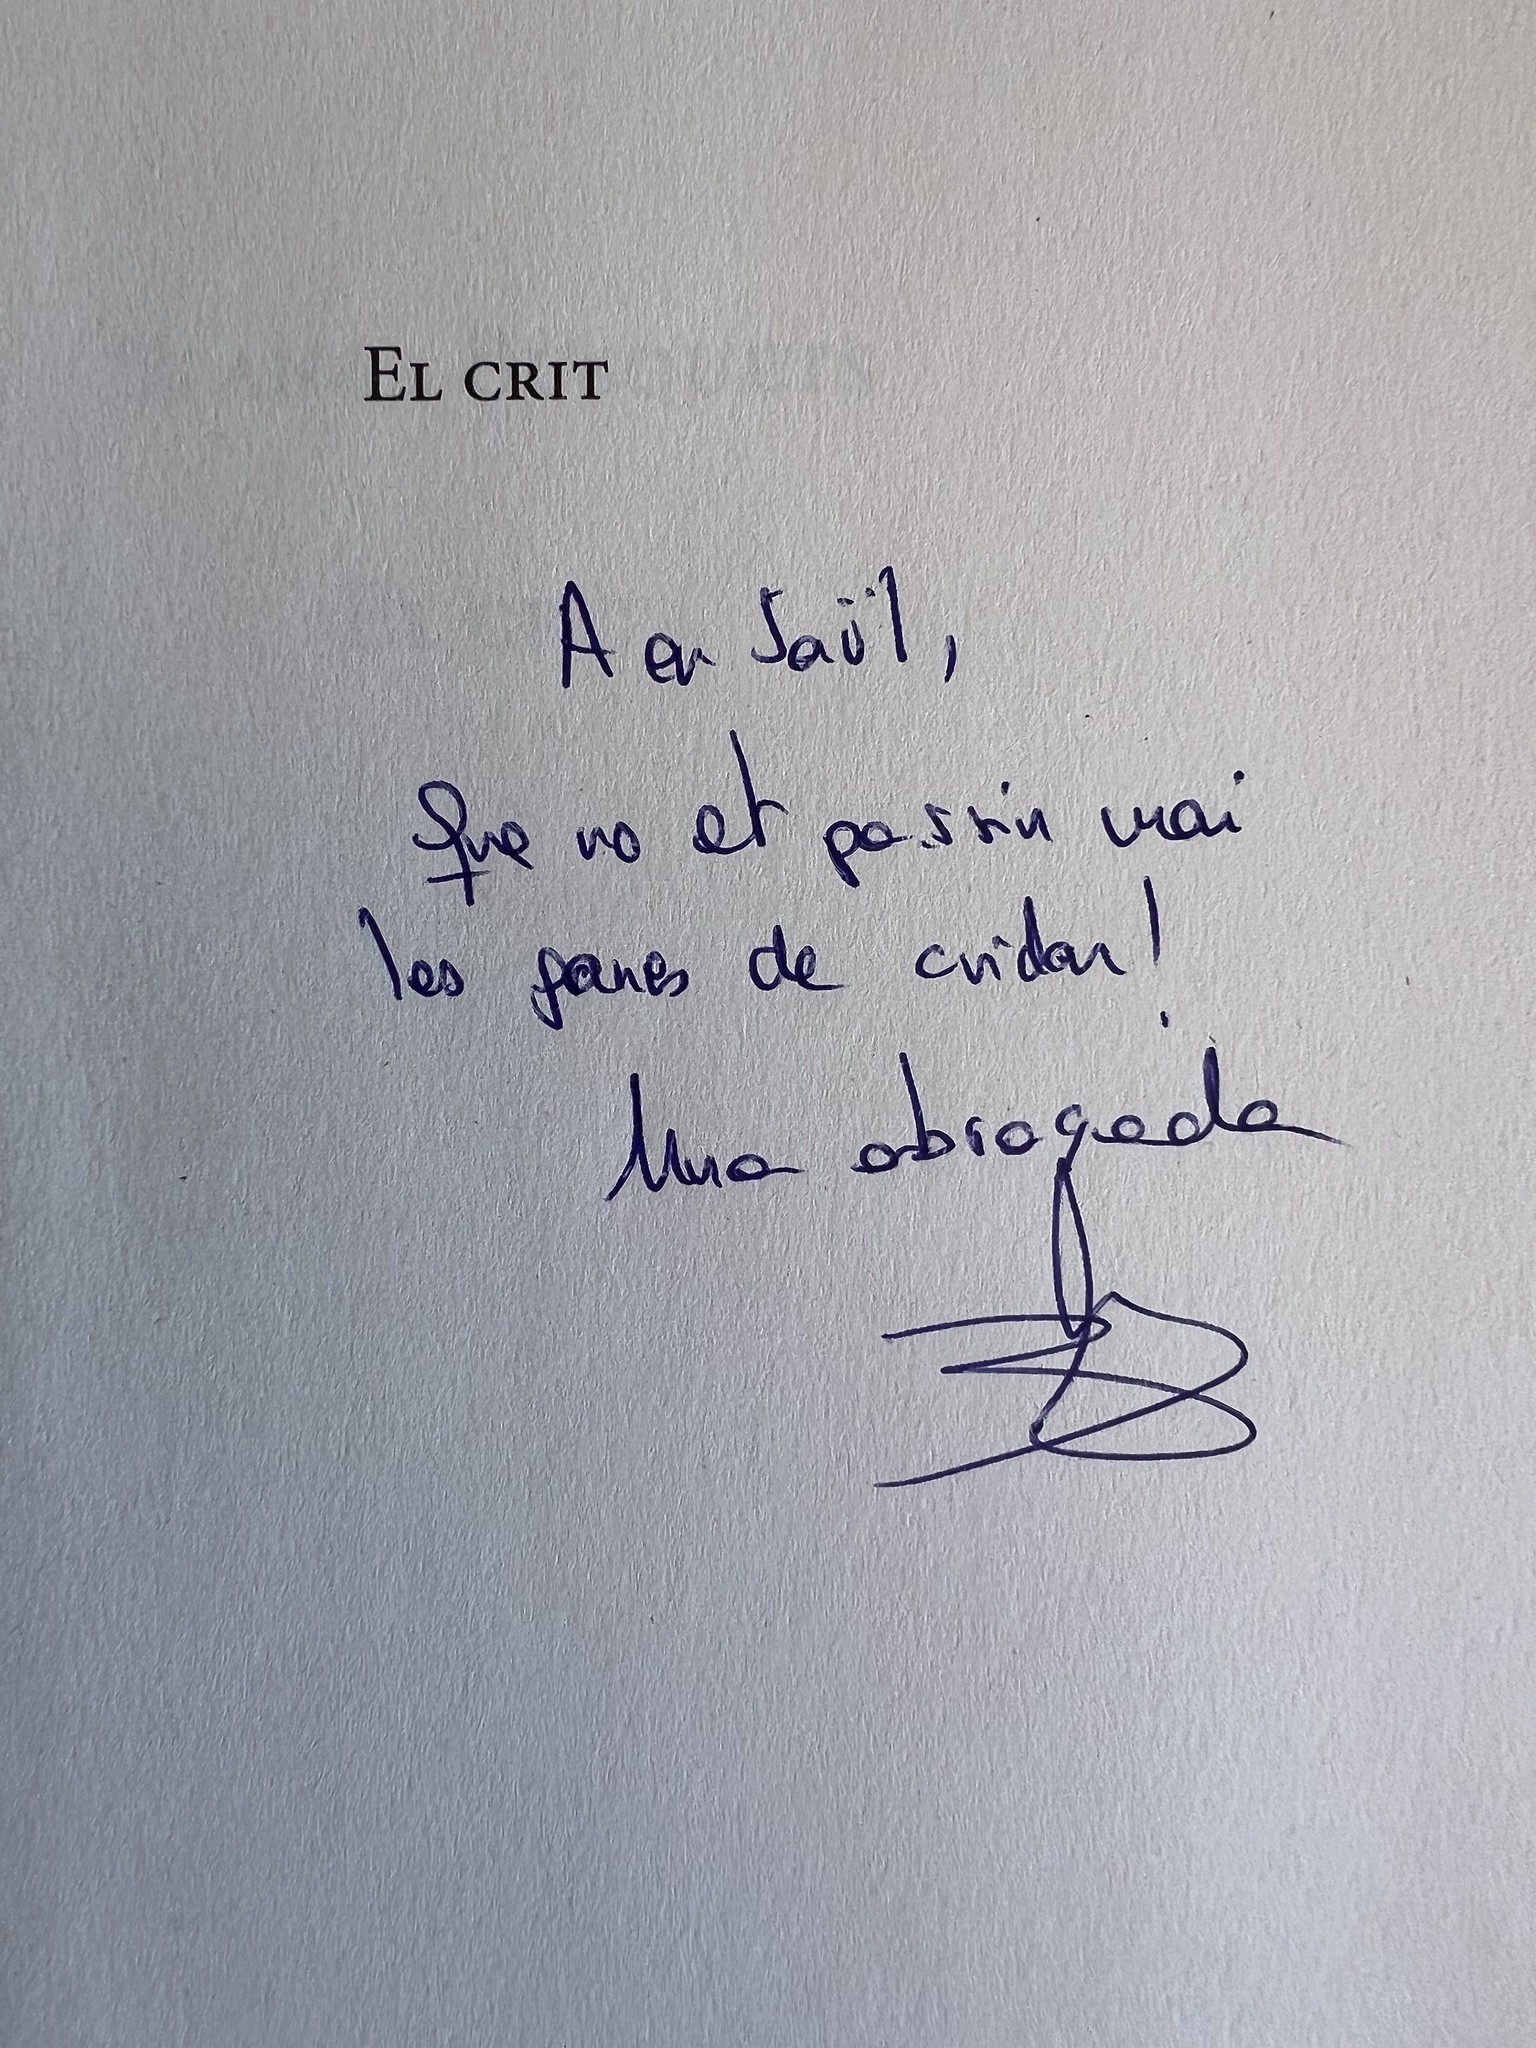 EL CRIT
A en Saül,
Que no et passin mai
les ganes de cridar!
Una abraçada